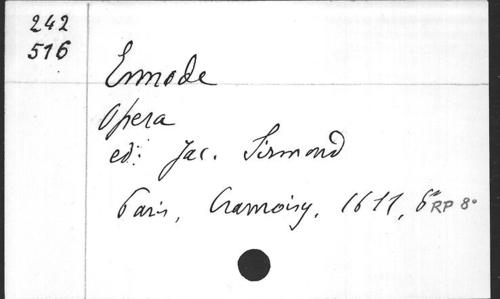 242
516
Ennode
Opera
ed: Jac. Sirmond
Paris, Cramoisy, 1611, 8° RP 8°